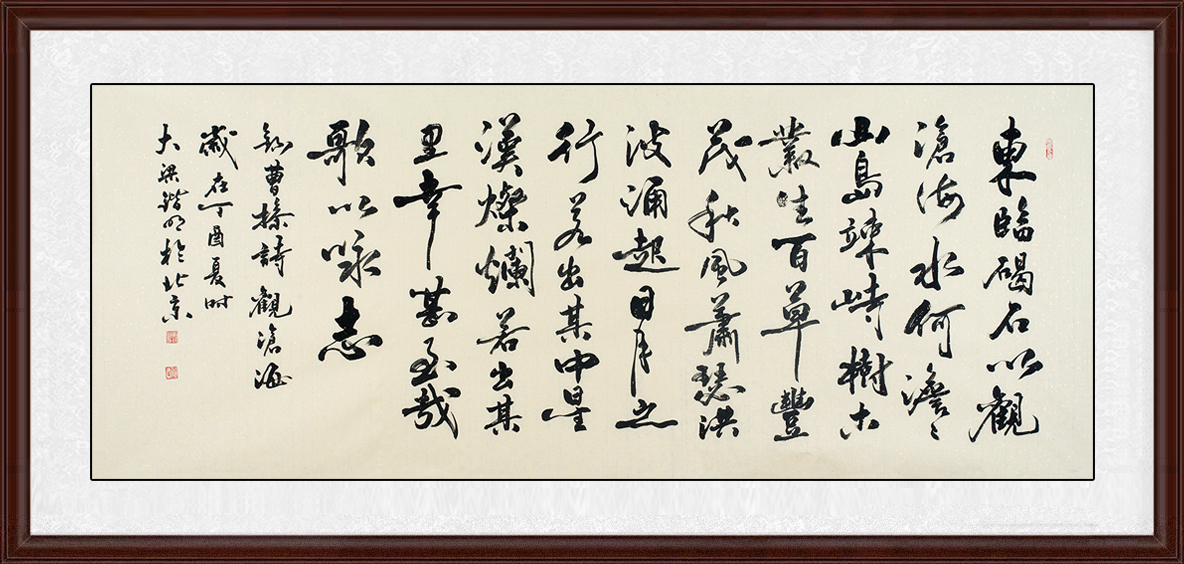 東臨碣石以觀
滄海水何澹〻
山島竦峙樹木
叢生百草豐
茂秋風蕭瑟洪
波涌起日月之
行若出其中星
漢燦爛若出其
里幸甚至哉
歌以咏志
錄曹操詩觀滄海
歲在丁酉夏时
大梁明於北京